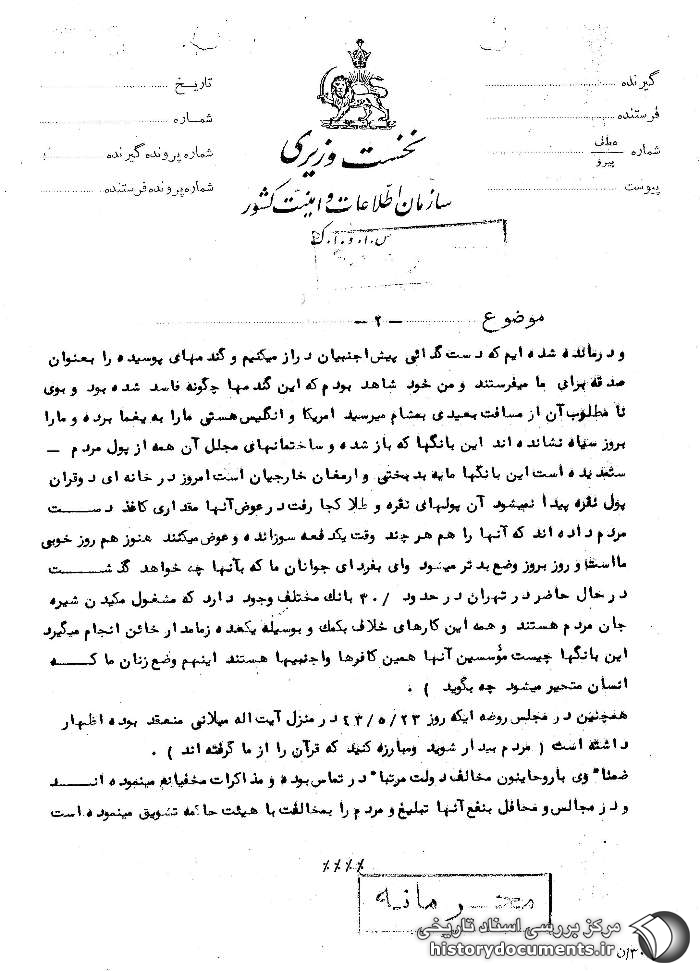 گیرنده
فرستنده
شماره عطف پیرو
پیوست
تاریخ
شماره
شماره پرونده گیرنده
شماره پرونده فرستنده
نخست وزیری
سازمان اطلاعات و امنیت کشور
س.ا.و.ا.ک
موضوع - ۲ -
و درمانده شده ایم که دست گدائی پیش اجنبیان دراز میکنیم و گندمهای پوسیده را بعنوان
صدقه برای ما میفرستند و من خود شاهد بودم که این گندمها چگونه فاسد شده بود و بوی
نا مطلوب آن از مسافت بعیدی بمشام میرسید امریکا و انگلیس هستی مارا به یغما برده و مارا
بروز سیاه نشانده اند این بانگها که باز شده و ساختمانهای مجلل آن همه از پول مردم -
ستمدیده است این بانگها مایه بدبختی و ارمغان خارجیان است امروز در خانه ای دوقران
پول نقره پیدا نمیشود آن پولهای نقره و طلا کجا رفت در عوض آنها مقداری کاغذ دست
مردم داده اند که آنها را هم هر چند وقت یکدفعه سوزانده و عوض میکنند هنوز هم روز خوبی
مااست و روز بروز وضع بدتر میشود وای بفردای جوانان ما که بآنها چه خواهد گذشت
در حال حاضر در تهران در حدود ۴۰/ بانك مختلف وجود دارد که مشغول مکیدن شیره
جان مردم هستند و همه این کارهای خلاف بکمك و بوسیله یکعده زمامدار خائن انجام میگیرد
این بانگها چیست مؤسسین آنها همین کافرها و اجنبیها هستند اینهم وضع زنان ما که
انسان متحیر میشود چه بگوید ) .
همچنین در مجلس روضه ایکه روز ۴۳/۵/۲۳ در منزل آیت اله میلانی منعقد بوده اظهار
داشته است ( مردم بیدار شوید ومبارزه کنید که قرآن را از ما گرفته اند ) .
ضمنا" وی با روحانیون مخالف دولت مرتبا" در تماس بوده و مذاکرات مخفیانه مینموده اند
و در مجالس و محافل بنفع آنها تبلیغ و مردم را بمخالفت با هیئت حاکمه تشویق مینموده است
٪٪٪٪
محرمانه
مرکز بررسی اسناد تاریخی
historydocuments.ir